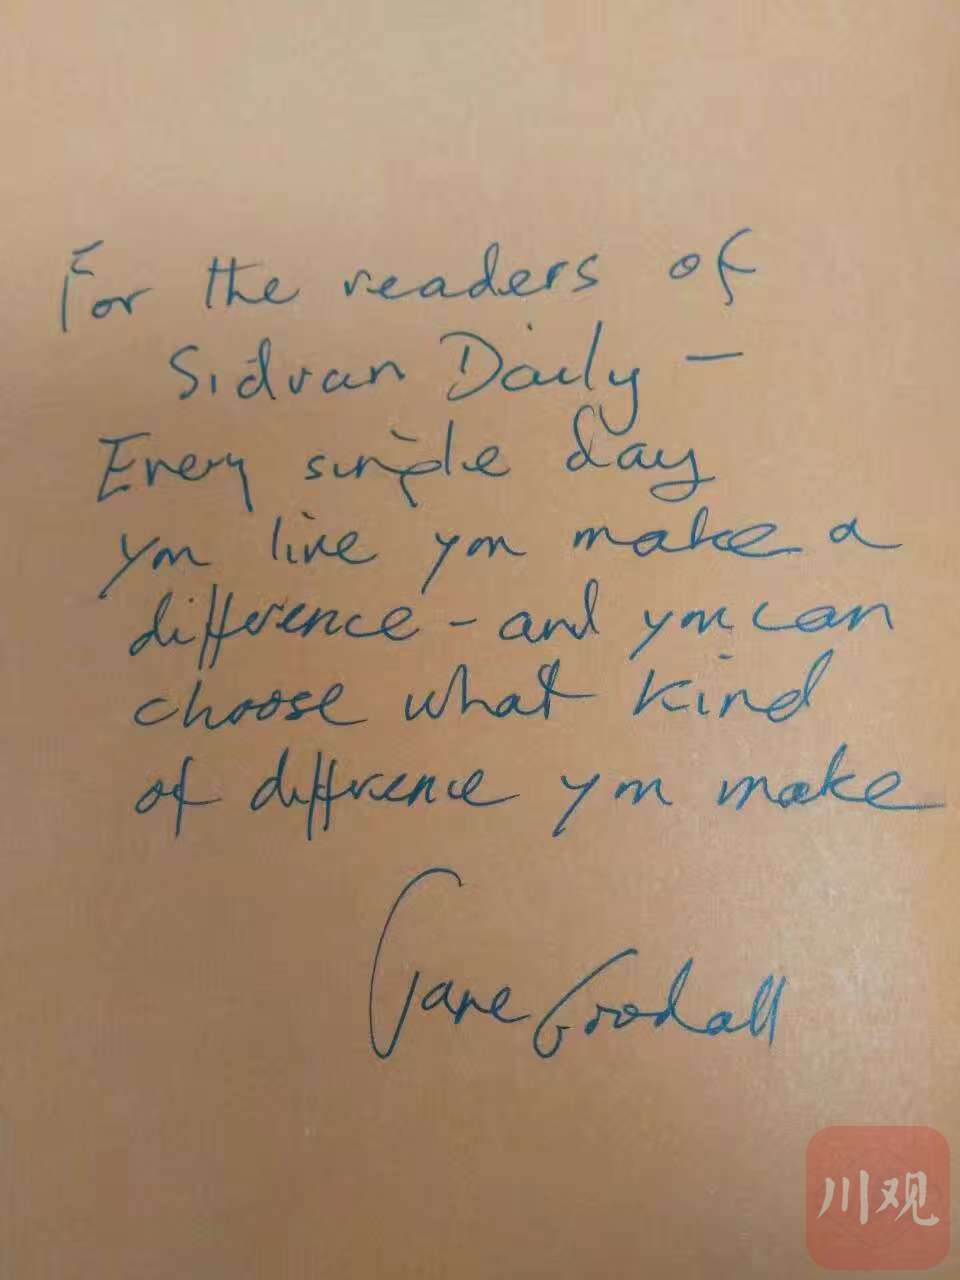 For the readers of
Sidvan Daily —
Every single day
you live you make a
difference - and you can
choose what kind
of difference you make
Jane Goodall
川观